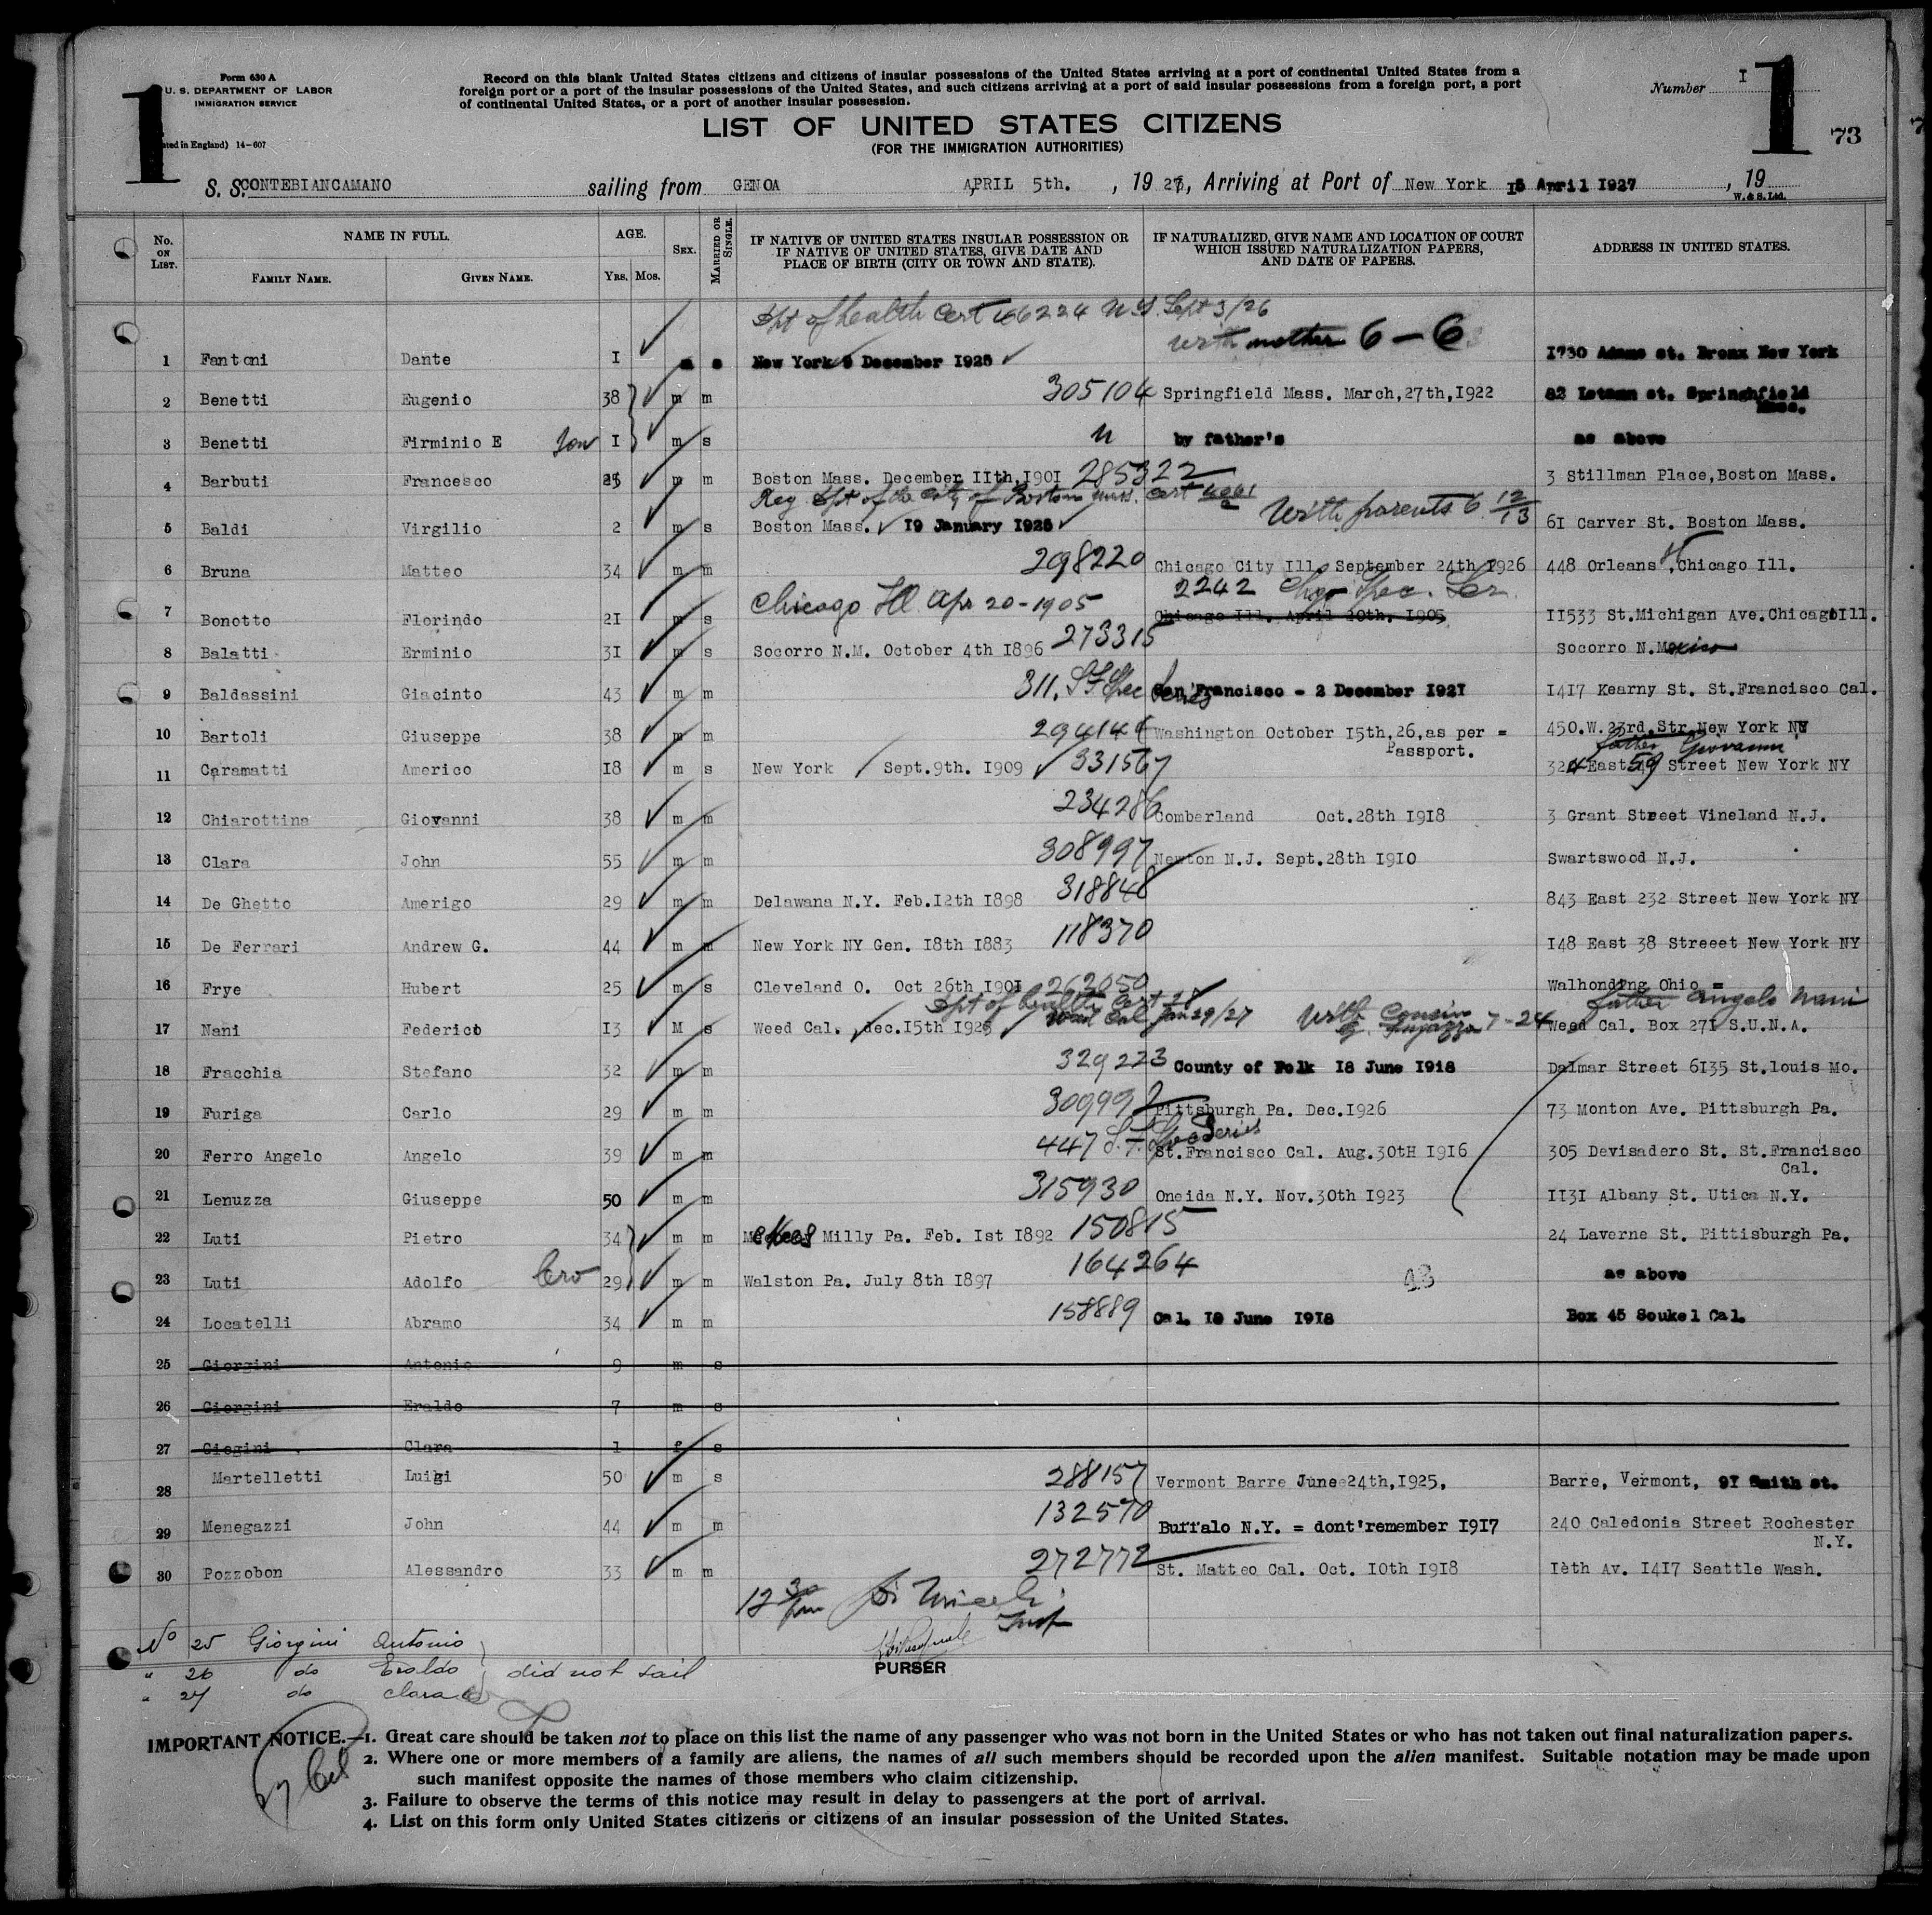 1
Form 630 A
U. S. DEPARTMENT OF LABOR
IMMIGRATION SERVICE
ated in England) 14-607
Record on this blank United States citizens and citizens of insular possessions of the United States arriving at a port of continental United States from a
foreign port or a port of the insular possessions of the United States, and such citizens arriving at a port of said insular possessions from a foreign port, a port
of continental United States, or a port of another insular possession.
Number I
1
73
LIST OF UNITED STATES CITIZENS
(FOR THE IMMIGRATION AUTHORITIES)
S. S. CONTEBIANCAMANO sailing from GENOA APRIL 5th. , 19 27, Arriving at Port of New York 15 April 1927 , 19
W. & S. Ltd.
No. ON LIST. NAME IN FULL. FAMILY NAME. GIVEN NAME. AGE. YRS. MOS. SEX. MARRIED OR SINGLE. IF NATIVE OF UNITED STATES INSULAR POSSESSION OR IF NATIVE OF UNITED STATES, GIVE DATE AND PLACE OF BIRTH (CITY OR TOWN AND STATE). IF NATURALIZED, GIVE NAME AND LOCATION OF COURT WHICH ISSUED NATURALIZATION PAPERS, AND DATE OF PAPERS. ADDRESS IN UNITED STATES.
Dpt of health Cert 46224 N Y. Sept 3/26
with mother 6-6
1 Fantoni Dante I m s New York 9 December 1925 1730 Adams st. Bronx New York
2 Benetti Eugenio 38 m m 305104 Springfield Mass. March,27th,1922 82 st. Springhfield Mass.
3 Benetti Firminio E Son I m s " by father's as above
4 Barbuti Francesco 25 m m Boston Mass. December IIth,1901 285322 3 Stillman Place,Boston Mass.
Reg Dpt of the City of Boston Mass. Cert
With parents 6 12/13
5 Baldi Virgilio 2 m s Boston Mass. 19 January 1925 61 Carver St. Boston Mass.
6 Bruna Matteo 34 m m 298220 Chicago City Ill. September 24th 1926 448 Orleans St,Chicago Ill.
2242 Chgo Spec. Ser.
7 Bonotto Florindo 21 m s Chicago Ill Apr 20-1905 Chicago Ill. April 20th. 1905 11533 St.Michigan Ave.Chicago Ill.
8 Balatti Erminio 31 m s Socorro N.M. October 4th 1896 273315 Socorro N.Mexico
9 Baldassini Giacinto 43 m m 311. S.F. Spec Series San Francisco - 2 December 1921 1417 Kearny St. St.Francisco Cal.
10 Bartoli Giuseppe 38 m m 294146 Washington October 15th,26,as per = Passport. 450.W.23rd.Str.New York NY
father Giovanni
11 Caramatti Americo 18 m s New York Sept.9th. 1909 331567 324 East 59 Street New York NY
12 Chiarottina Giovanni 38 m m 234286 Comberland Oct.28th 1918 3 Grant Street Vineland N.J.
13 Clara John 55 m m 308997 Newton N.J. Sept.28th 1910 Swartswood N.J.
14 De Ghetto Amerigo 29 m m Delawana N.Y. Feb.12th 1898 318848 843 East 232 Street New York NY
15 De Ferrari Andrew G. 44 m m New York NY Gen. 18th 1883 118370 148 East 38 Streeet New York NY
16 Frye Hubert 25 m s Cleveland O. Oct 26th 1901 262050 Walhonding Ohio =
Dpt of health Cert 28
Weed Cal Jan 29/27 With cousin 7-24 father Angelo Nani
17 Nani Federico 13 M s Weed Cal. dec.15th 1923 Weed Cal. Box 271 S.U.N.A.
18 Fracchia Stefano 32 m m 329223 County of Polk 18 June 1918 Dalmar Street 6135 St.louis Mo.
19 Furiga Carlo 29 m m 309992 Pittsburgh Pa. Dec.1926 73 Monton Ave. Pittsburgh Pa.
20 Ferro Angelo Angelo 39 m m 447 S.F. Spec Series St.Francisco Cal. Aug.30tH 1916 305 Devisadero St. St.Francisco Cal.
21 Lenuzza Giuseppe 50 m m 315930 Oneida N.Y. Nov.30th 1923 1131 Albany St. Utica N.Y.
22 Luti Pietro 34 m m Milly Pa. Feb. 1st 1892 150815 24 Laverne St. Pittisburgh Pa.
23 Luti Adolfo bro 29 m m Walston Pa. July 8th 1897 164264 43 as above
24 Locatelli Abramo 34 m m 158889 Cal. 19 June 1918 Box 45 Soukel Cal.
25 Giorgini Antonio 9 m s
26 Giorgini Eraldo 7 m s
27 Giogini Clara 1 f s
28 Martelletti Luigi 50 m s 288157 Vermont Barre June24th,1925, Barre, Vermont, 91 Smith st.
29 Menegazzi John 44 m m 132570 Buffalo N.Y. = dont'remember 1917 240 Caledonia Street Rochester N.Y.
30 Pozzobon Alessandro 33 m m 272772 St. Matteo Cal. Oct. 10th 1918 1èth Av. 1417 Seattle Wash.
12 30 pm Insp
No 25 Giorgini Antonio
" 26 do Eraldo did not sail
" 27 do Clara
PURSER
IMPORTANT NOTICE.—1. Great care should be taken not to place on this list the name of any passenger who was not born in the United States or who has not taken out final naturalization papers.
2. Where one or more members of a family are aliens, the names of all such members should be recorded upon the alien manifest. Suitable notation may be made upon
such manifest opposite the names of those members who claim citizenship.
3. Failure to observe the terms of this notice may result in delay to passengers at the port of arrival.
4. List on this form only United States citizens or citizens of an insular possession of the United States.
27 Cit